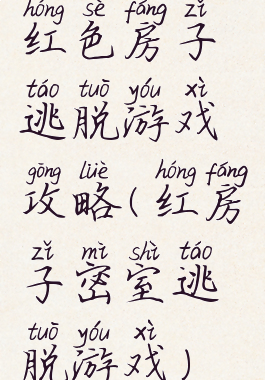 hóng sè fáng zǐ
红色房子
táo tuō yóu xì
逃脱游戏
gōng lüè hóng fáng
攻略(红房
zǐ mì shì táo
子密室逃
tuō yóu xì
脱游戏)